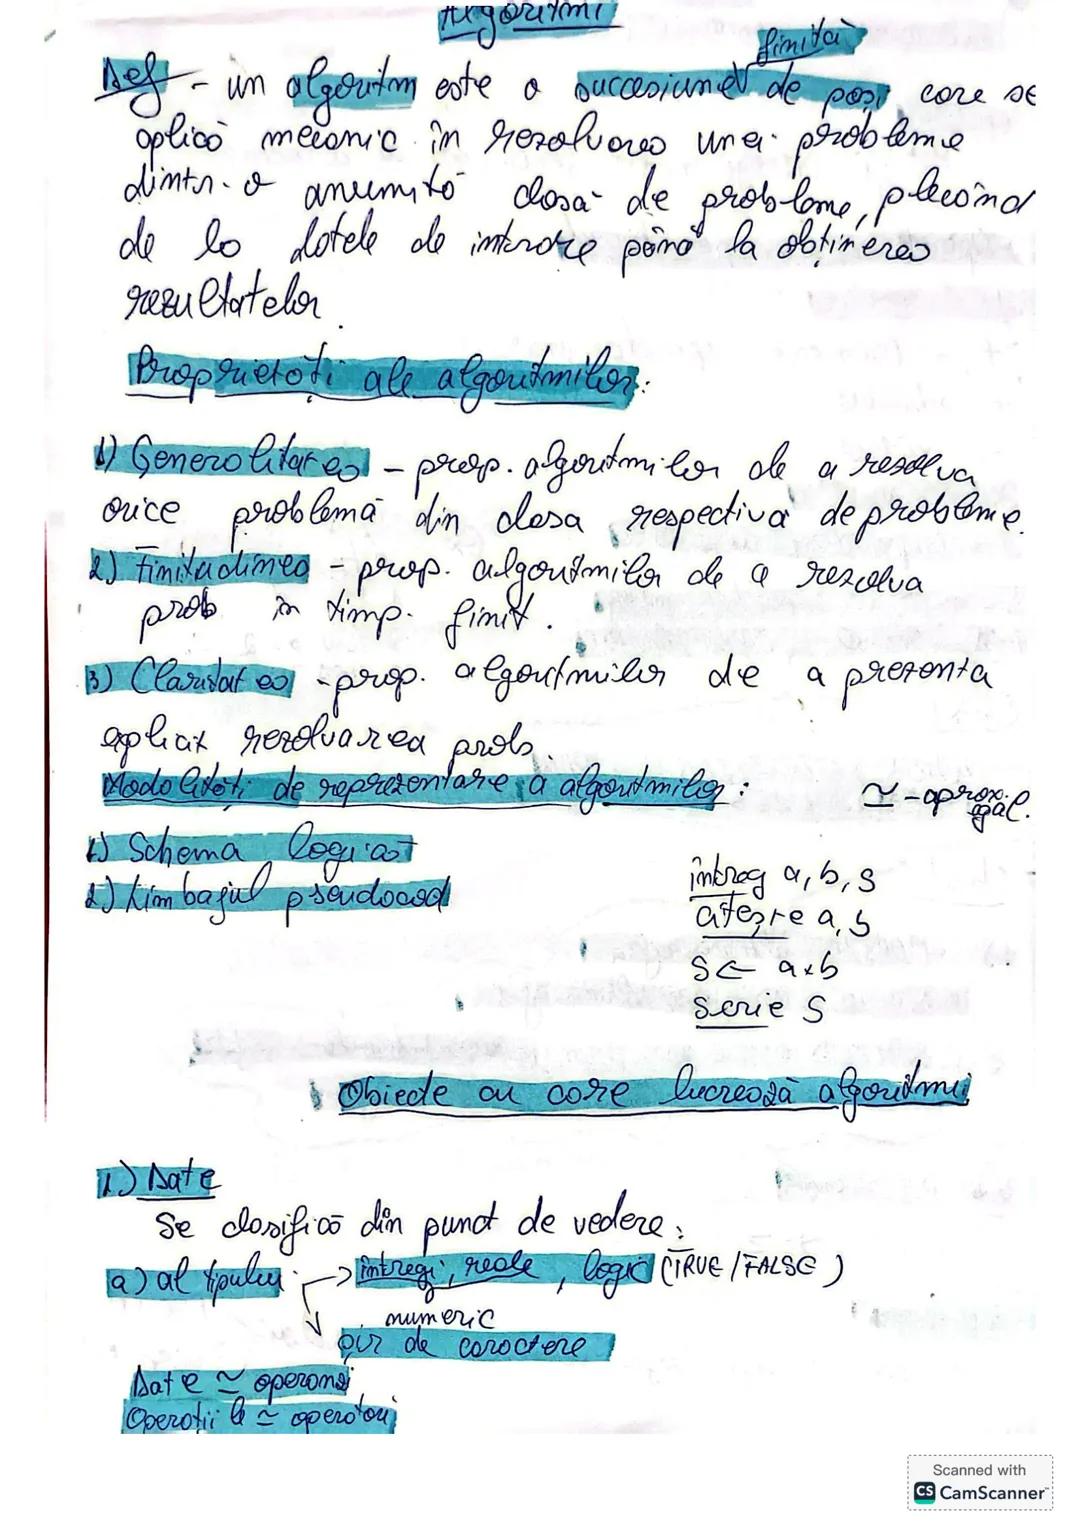 Algoritmi
finită
Def - un algoritm este o succesiune de pași care se
aplică mecanic în rezolvarea unei probleme
dintr-o anumită clasă de probleme, plecând
de la datele de intrare până la obținerea
rezultatelor.
Proprietăți ale algoritmilor:
1) Generalitatea - prop. algoritmilor de a rezolva
orice problemă din clasa respectivă de probleme.
2) Finitudinea - prop. algoritmilor de a rezolva
prob în timp. finit.
3) Claritatea - prop. algoritmilor de a prezenta
explicit rezolvarea prob.
Modalități de reprezentare a algoritmilor:
≃ - aprox. egal.
1) Schema logică
2) Limbajul pseudocod
întreg a, b, s
citește a, b
S ← a+b
scrie S
Obiecte cu care lucrează algoritmii
1) Date
Se clasifică din punct de vedere:
a) al tipului → întregi, reale, logic (TRUE/FALSE)
numeric
șir de caractere
Date ≃ operanzi
Operații le ≃ operatori
Scanned with
CS CamScanner